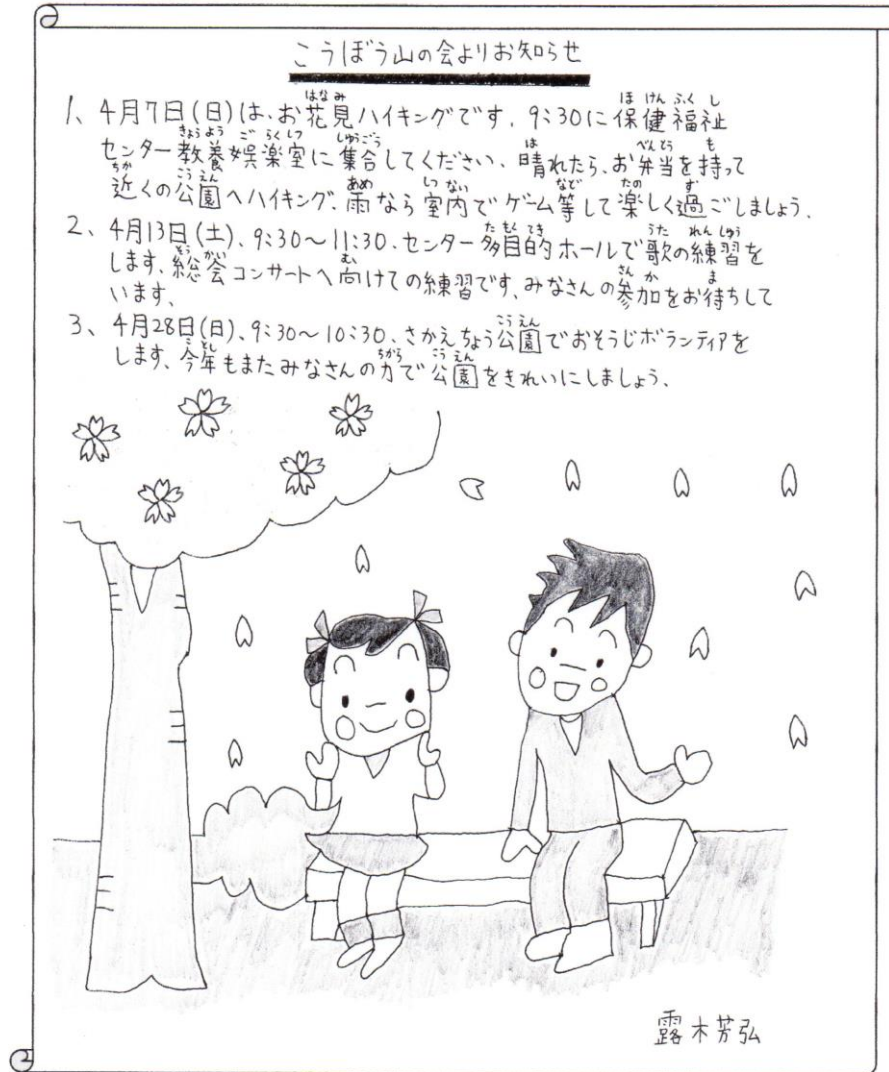 こうぼう山の会よりお知らせ
1、4月7日(日)は、お花見ハイキングです。9:30に保健福祉
センター教養娯楽室に集合してください。晴れたら、お弁当を持って
近くの公園へハイキング、雨なら室内でゲーム等して楽しく過ごしましょう。
2、4月13日(土)、9:30～11:30、センター多目的ホールで歌の練習を
します。総会コンサートへ向けての練習です。みなさんの参加をお待ちして
います。
3、4月28日(日)、9:30～10:30、さかえちょう公園でおそうじボランティアを
します。今年もまたみなさんの力で公園をきれいにしましょう。
露木芳弘